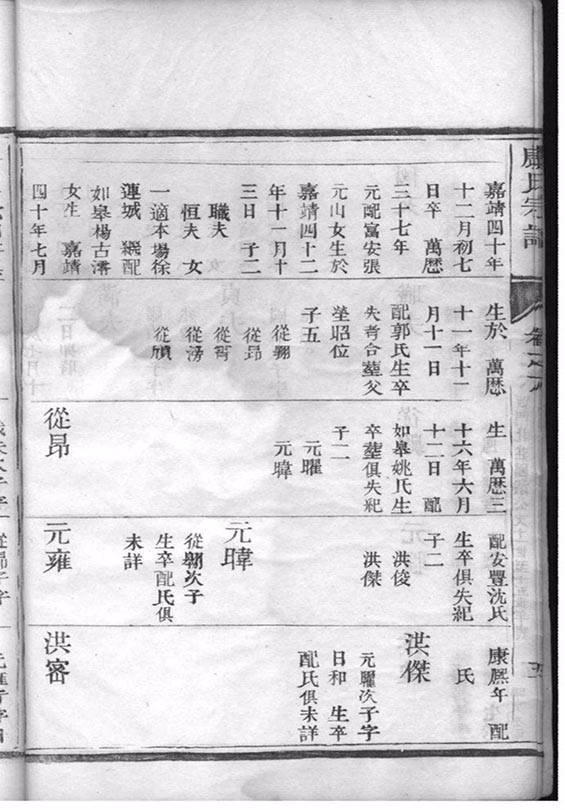 氏宗譜
嘉靖四十年
十二月初七
日卒 萬歷
三十七年
元配富安張
元山女生於
嘉靖四十二
年十一月十
三日 子二
職夫
恒夫 女
一適本場徐
連城 繼配
如皋楊古濘
女生 嘉靖
四十年七月
生於 萬歷
十一年十一
月十一日
配郭氏生卒
失考合葬父
塋昭位
子五
從翱
從昂
從滂
生 萬歷三
十六年六月
十二日 配
如皋姚氏生
卒葬俱失紀
子二
元曜
元暐
從昂
配安豐沈氏
生卒俱失紀
子二
洪俊
洪傑
元暐
從翱次子
生卒配氏俱
未詳
元雍
康熙年 配
氏
洪傑
元曜次子字
日和 生卒
配氏俱未詳
洪審